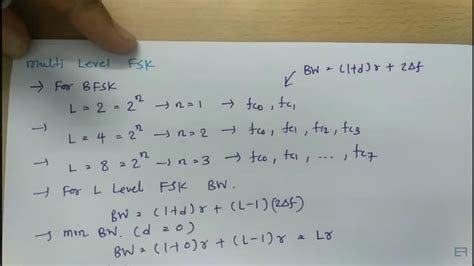 Multi Level FSK
BW = (1+d)r + 2Δf
→ For BFSK
L = 2 = 2^n → n = 1 → fc0, fc1
→ L = 4 = 2^n → n = 2 → fc0, fc1, fc2, fc3
→ L = 8 = 2^n → n = 3 → fc0, fc1, ..., fc7
→ For L Level FSK BW.
BW = (1+d)r + (L-1)(2Δf)
→ min BW. (d = 0)
BW = (1+0)r + (L-1)r = Lr